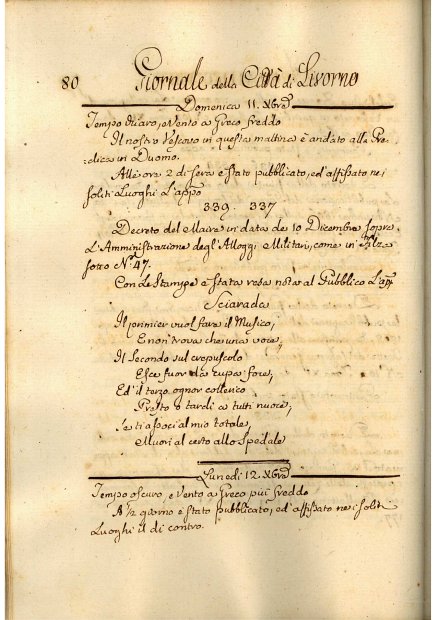 80 Giornale della Città di Livorno
Domenica 11. Xbre
Tempo chiaro, e Vento a Greco freddo
Il nostro Vescovo in questa mattina è andato alla Pre-
dica in Duomo.
Alle ore 2 di sera è stato pubblicato, ed affissato nei
soliti Luoghi L'appo
339. 337
Decreto del Maire in data de 10 Decembre sopra
L'Amministrazione degl'Alloggi Militari, come in Filza
sotto N.º 47.
Con Le Stampe è stata resa nota al Pubblico L'app.
Sciarada
Il primier vuol fare il Musico,
E non trova che una voce,
Il Secondo sul crepuscolo
Esce fuor da rupa fore,
Ed il terzo ognor collerico
Presto o tardi a tutti nuoce,
Se ti associ al mio totale,
Muori al certo allo Spedale
Lunedi 12. Xbre
Tempo oscuro, e Vento a Greco più freddo
A ½ giorno è stato pubblicato, ed affissato nei soliti
Luoghi il di contro.